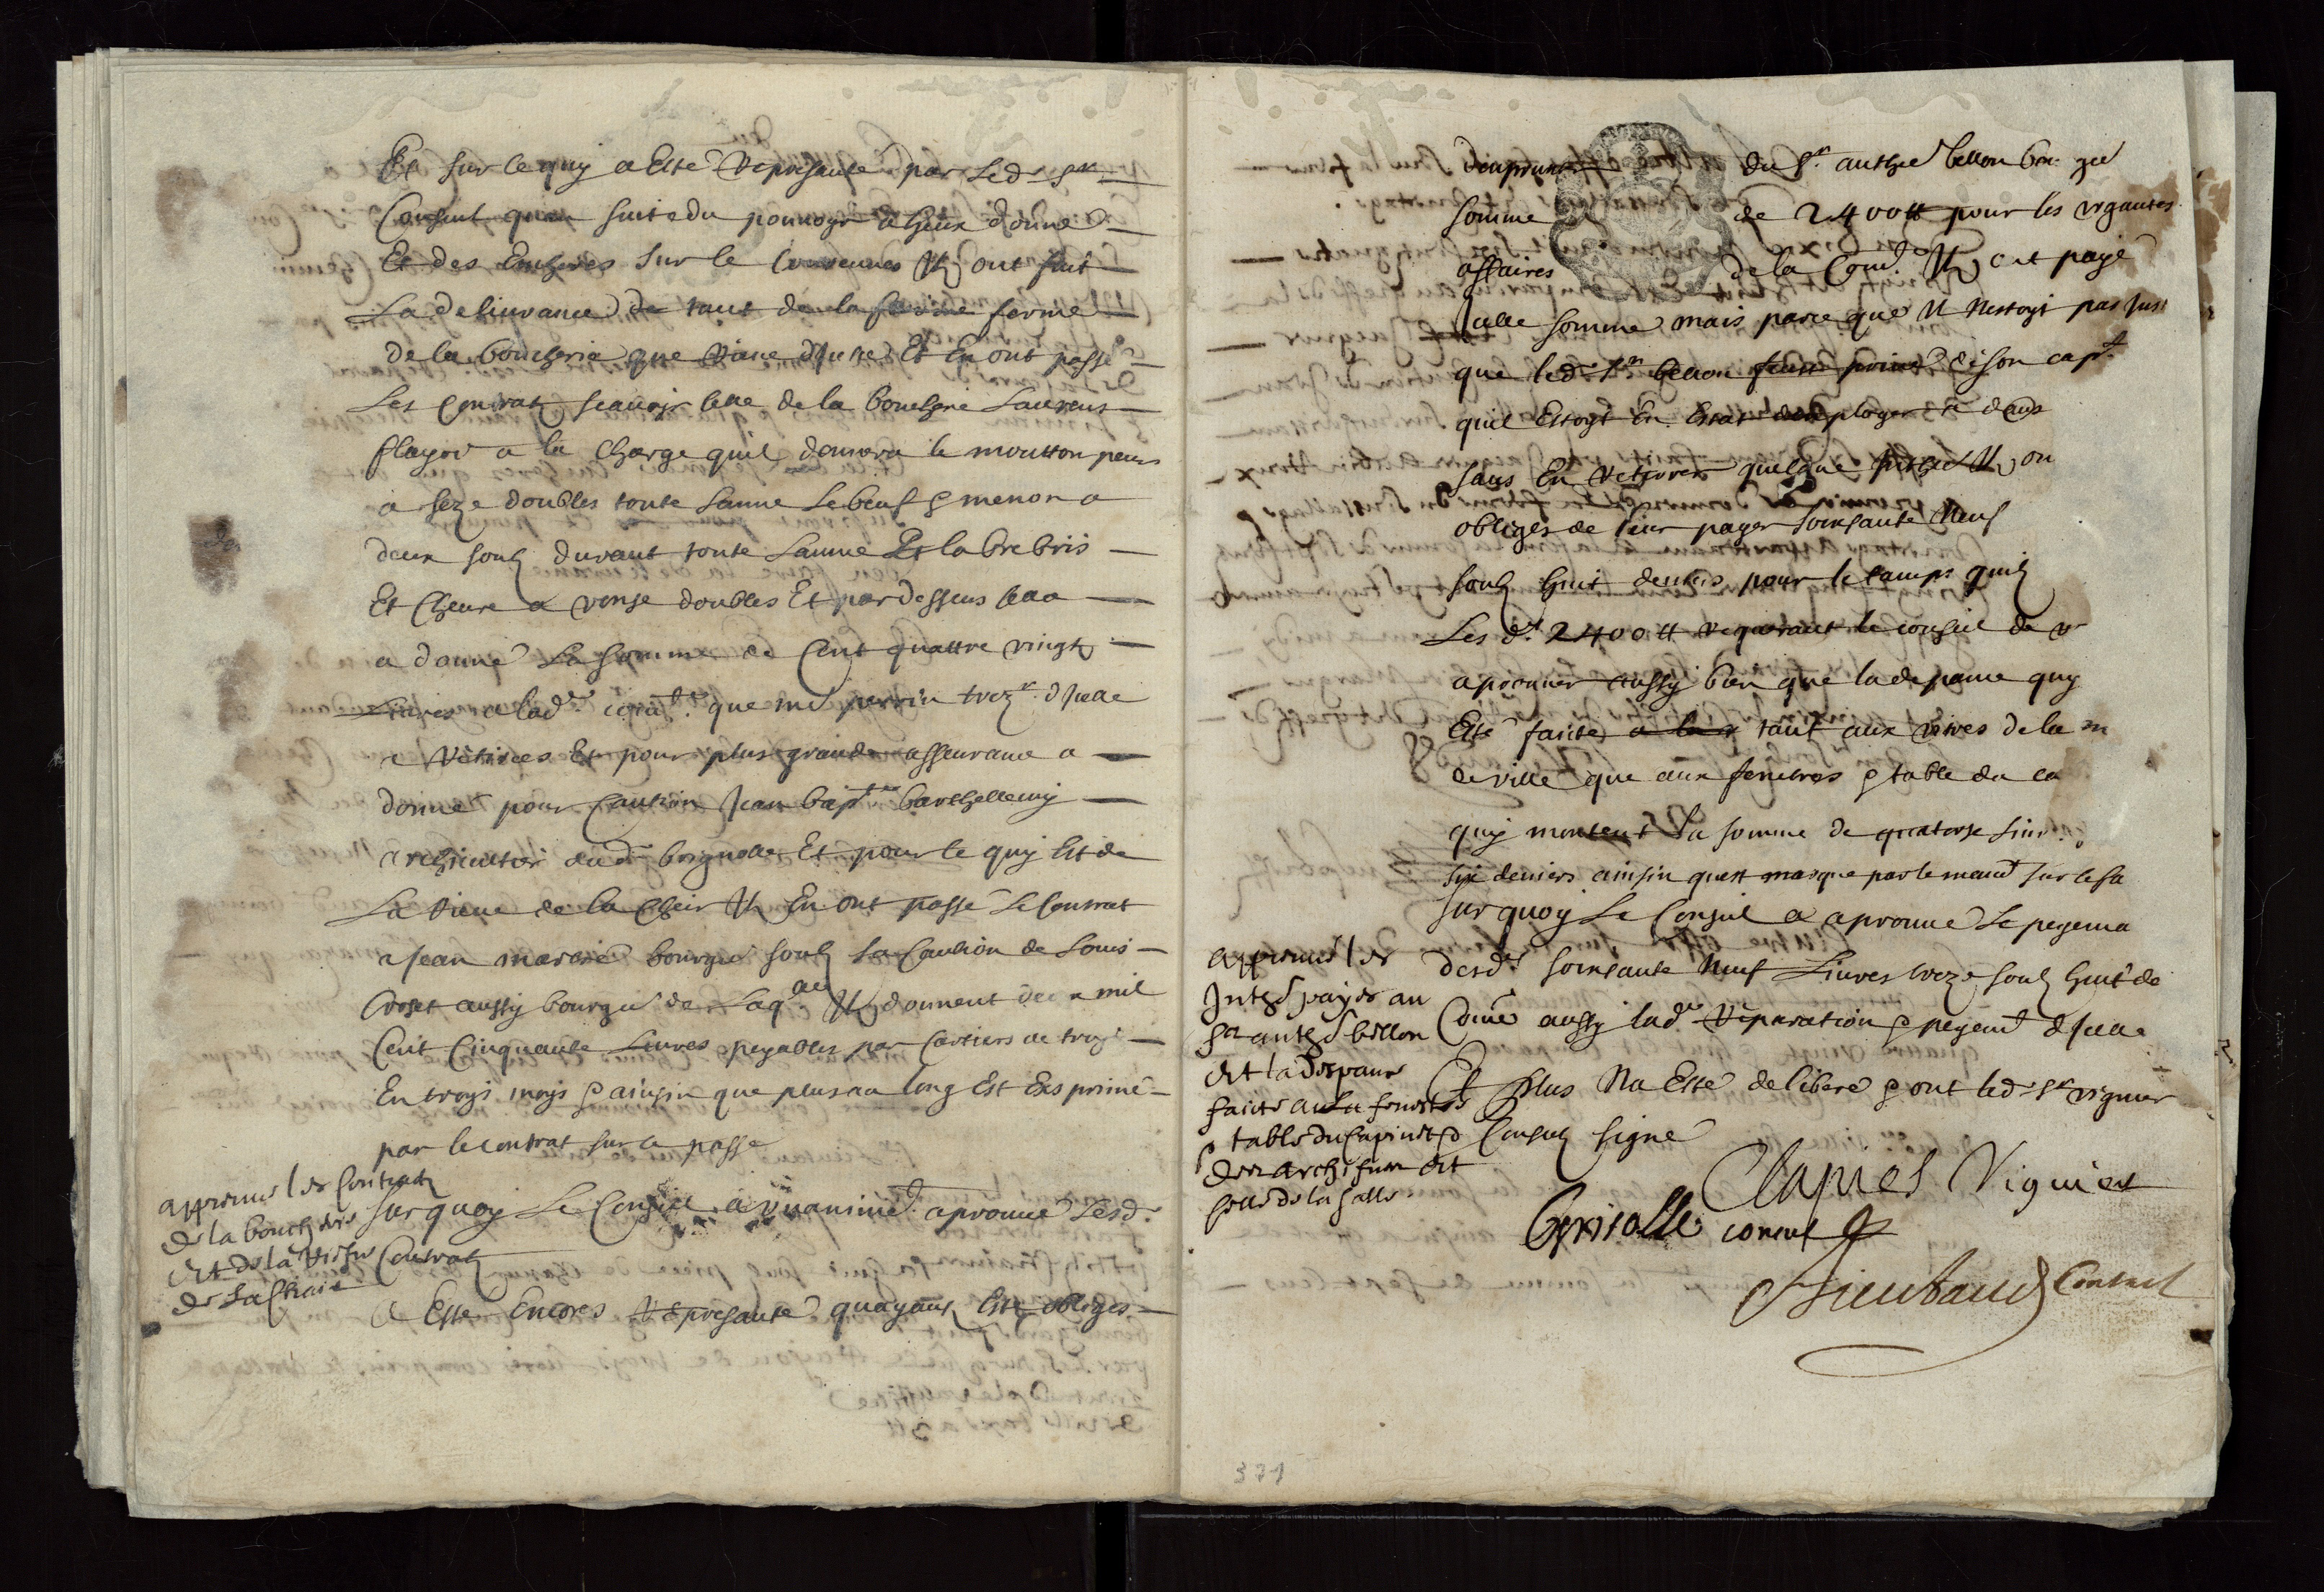 Et sur ce quy a Esté Represanté par led sr
Consul quen suite du pouvoyr a heux donné
Et des Encheres sur le Ilz ont fait
La delivrance de tant de la ferme
de la boucherie que Et En ont passé
Les Contratz scavoir celle de la boucherie Laurens
flayou a la charge quil donnera le moutton
a seze doubles toute Lanne Le beuf & menon a
deux soulz durant toute Lanne Et la brebris
Et Cheure a vonse doubles Et par dessus cella
a donné La somme de Cent quattre vingtz
Livres a lad. comté. que me perrin trezr. dicelle
a Retirees Et pour plus grande asseurance a
donné pour Caution Jean bapte barthellemy
dud. brignolle Et pour ce quy Est de
La de la Chair Ilz En ont passé Le Contrat
a Jean bourgeois soulz La Caution de Louis
aussy bourgeois de Laqlle Ilz donnent mil
Cent Cinquante Livres payables par Cartiers de troys
En troys moys & ainsin que plus au long Est Exsprimé
par le contrat sur ce passé
approuvé les Contratz
de la boucherie
Et de la
de La Chair
Sur quoy Le Conseil a unanimet. aprouvé Lesd.
Contratz
A Esté Encores Represanté quayant Esté obliges
demprunter du Sr. anthoe bellon
somme de 2400 tt pour les urgantes
affaires de la Comte. Ilz ont payé
Icelle somme mais parce que Il Nestoyt pas Just
que led Sr bellon son capt.
quil Estoyt En Estat
sans En Retirer quelque Ilz on
obliges de leur payer soixsante Neuf
soulz huit deniers pour le tamps quilz
Les dt. 2400 tt requerant le conseil de v
aprouver aussy bien que la depance quy
Esté faicte tant aux vitres de la m
de ville que aux fenetres & table du ca
quy montent La somme de quatorse Livr.
six deniers ainsin quest marque par le mandt sur ce fa
Sur quoy Le Conseil a aprouvé Le peyema
desd. soixsante Neuf Livres treze soulz huit de
Comme aussy lad. Reparation & peyemt dicelle
approuvé les
Inthes payes au
Sr anthoe bellon
Et la depance
faicte aux fenestres
& table du
des archifs Et
de la salle
Et plus Na Esté delibere & ont led Sr viguier
& Consulz signé
Clapies Viguier
Grisolle consul
Consul
371